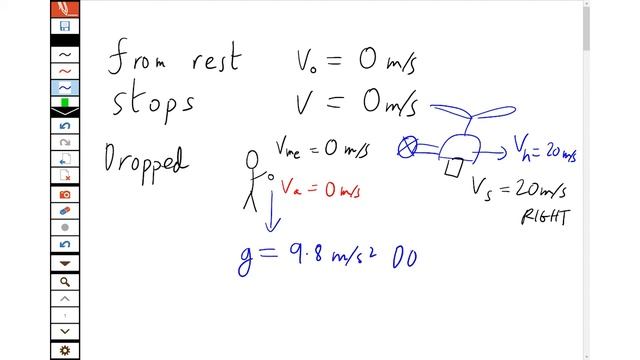 from rest V₀ = 0 m/s
stops V = 0 m/s
Dropped
Vme = 0 m/s
Va = 0 m/s
Vh = 20 m/s
Vs = 20 m/s
RIGHT
g = 9.8 m/s² DO